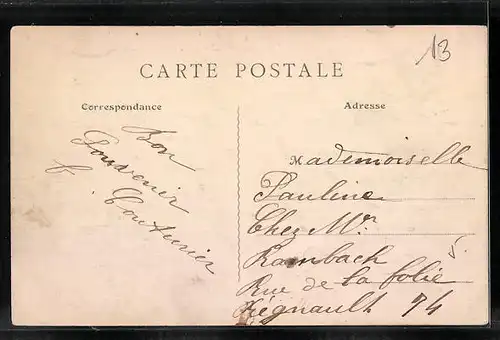 13
CARTE POSTALE
Correspondance
Adresse
Bon
Souvenir
f. Couturier
Mademoiselle
Pauline
Chez Mr
Rambach
5.
Rue de la folie
Régnault 74